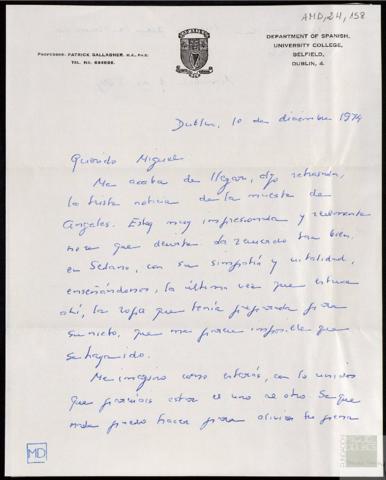 AMD, 24, 158
PROFESSOR: PATRICK GALLAGHER, M.A., PH.D.
TEL. No.
DEPARTMENT OF SPANISH,
UNIVERSITY COLLEGE,
BELFIELD,
DUBLIN, 4.
Dublin, 10 de diciembre 1974
Querido Miguel
Me acaba de llegar, algo retrasada,
la triste noticia de la muerte de
Angeles. Estoy muy impresionada y realmente
no sé que decirte. La recuerdo tan bien,
en Sedano, con su simpatía y vitalidad,
enseñándonos, la última vez que estuve
ahí, la ropa que tenía preparada para
su nieto, que me parece imposible que
se haya ido.
Me imagino como estarás, con lo unidos
que estar el uno al otro. Se que
nada puedo hacer para aliviar tu pena
MD